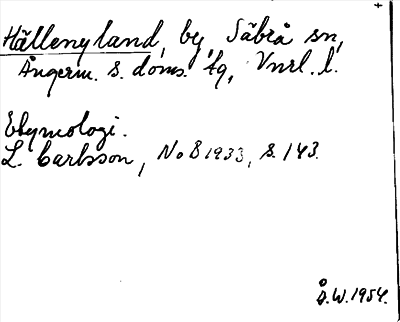 +
Hällenyland, by, Säbrå sn,
Ångerm. s. doms. tg, Vnrl. l.
Etymologi.
L. Carlsson, NoB 1933, s. 143.
Å.W. 1954.